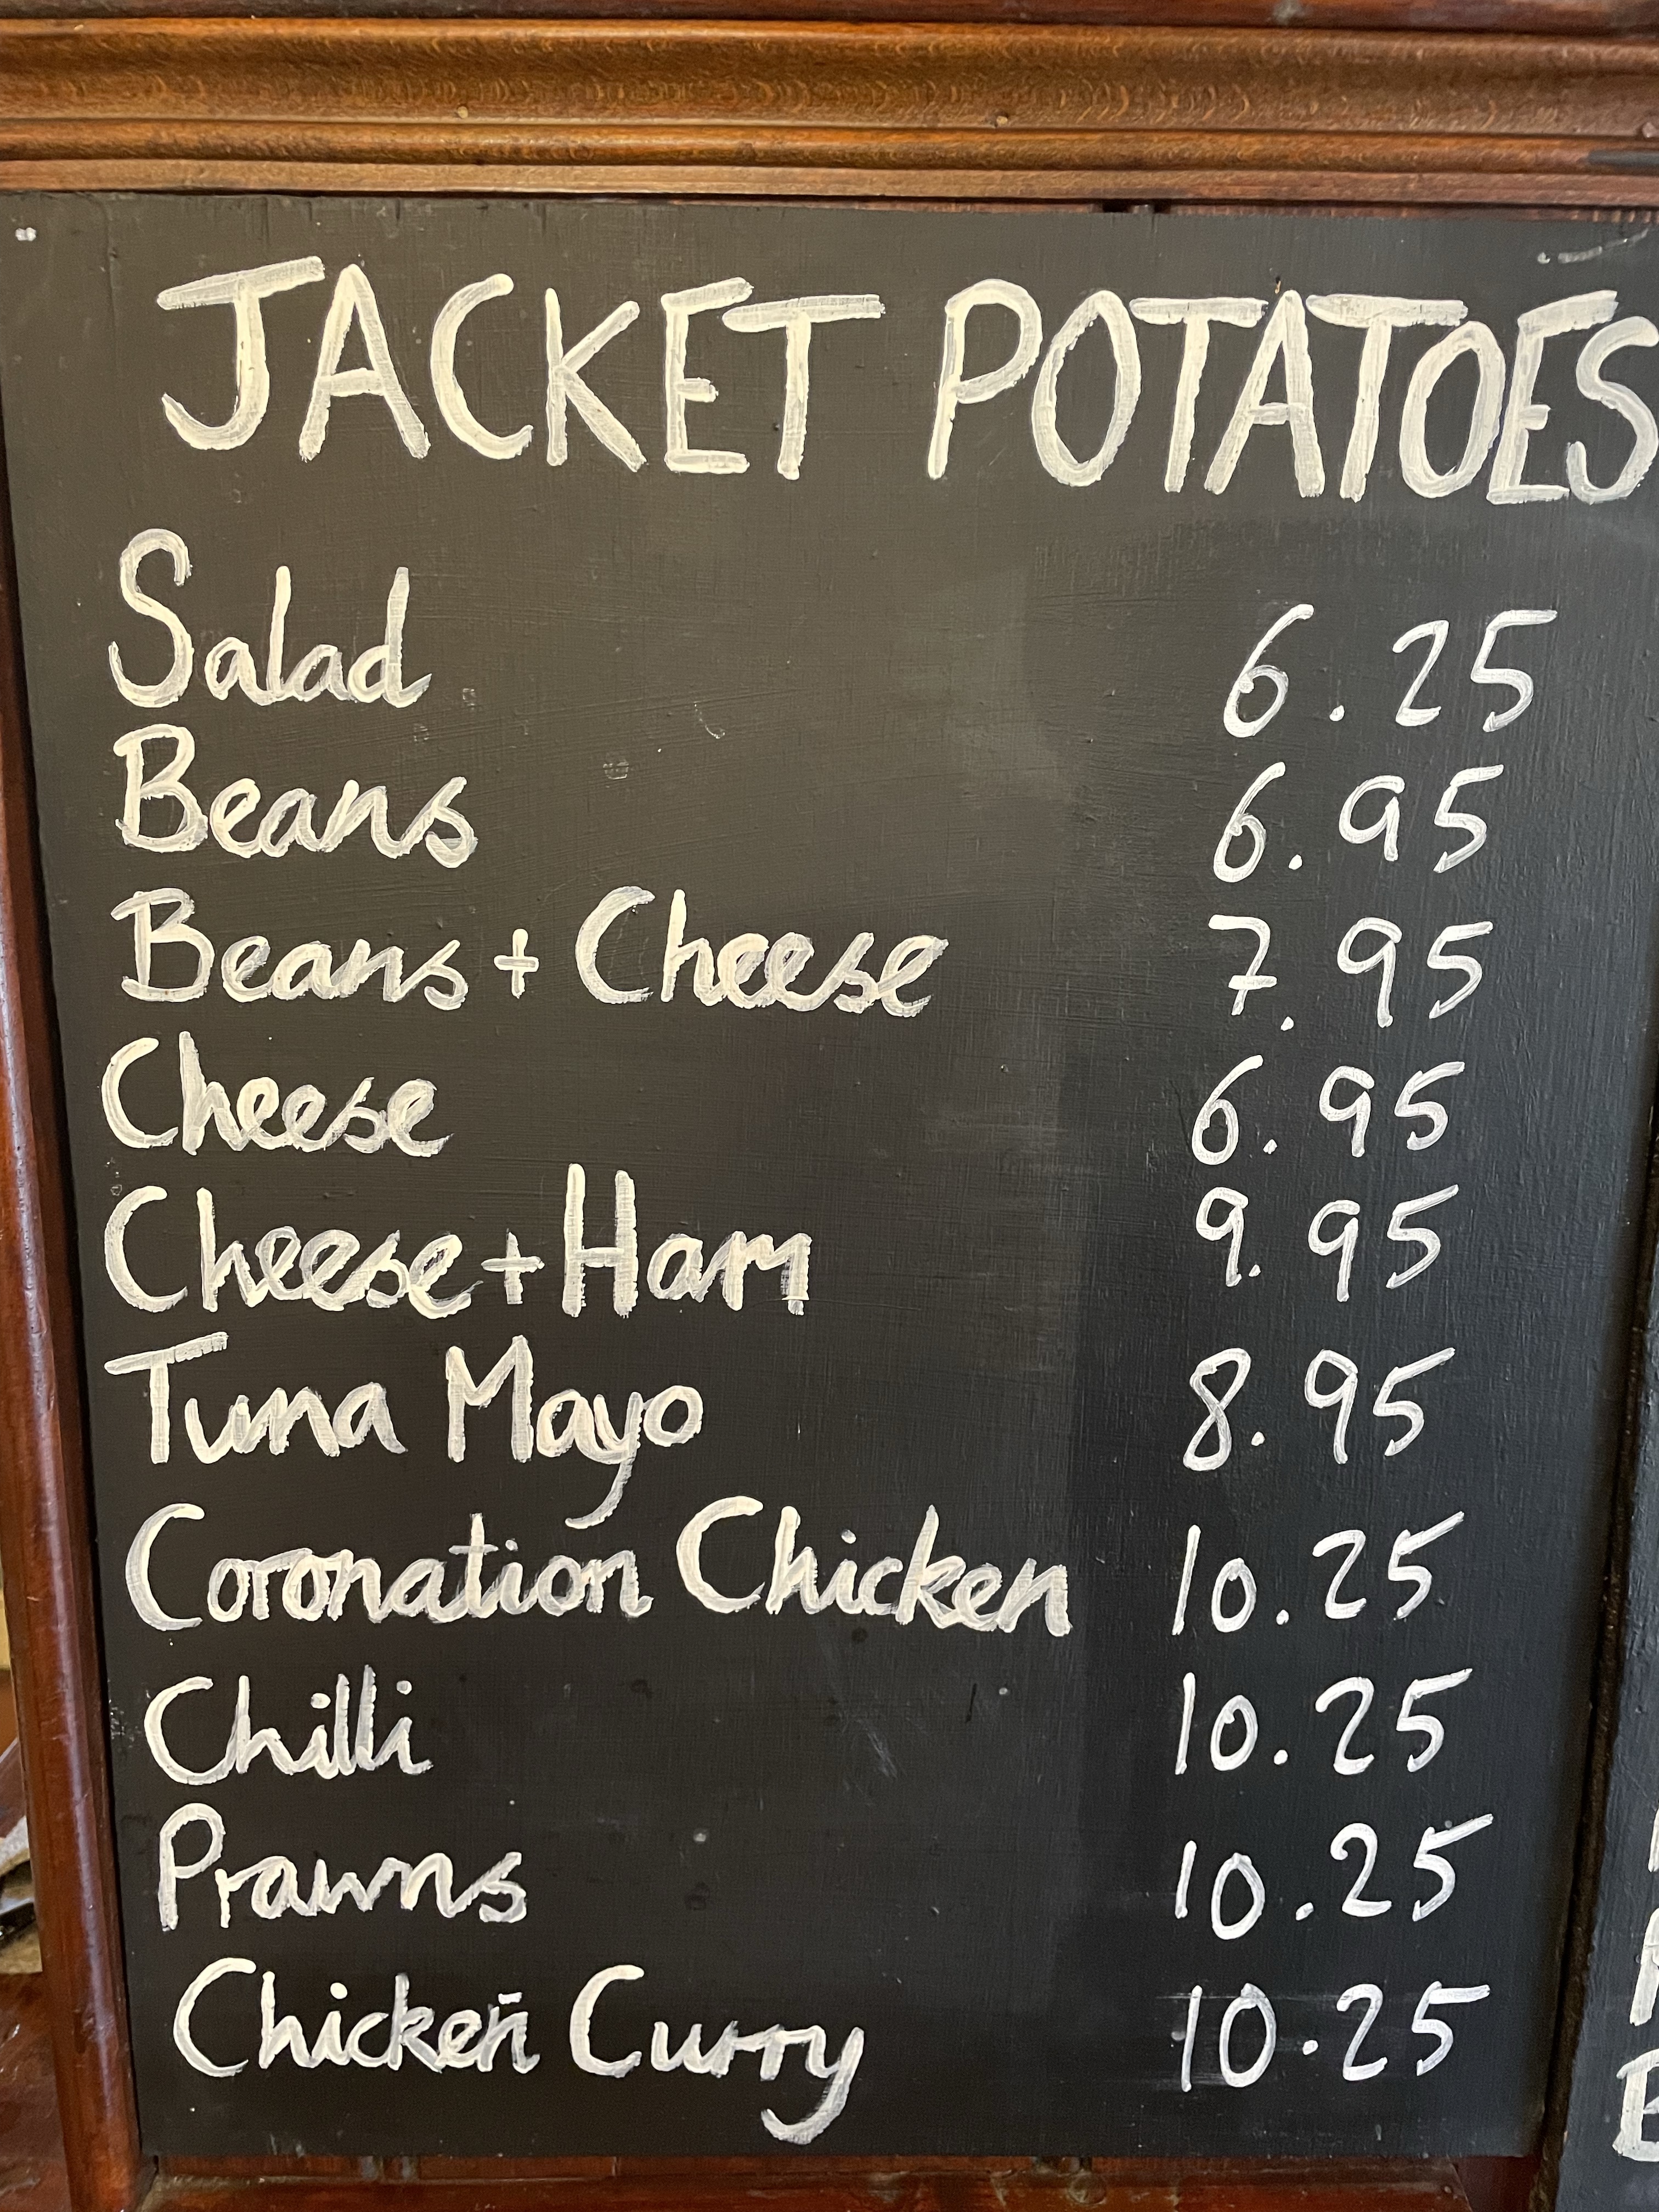 JACKET POTATOES
Salad 6.25
Beans 6.95
Beans + Cheese 7.95
Cheese 6.95
Cheese + Ham 9.95
Tuna Mayo 8.95
Coronation Chicken 10.25
Chilli 10.25
Prawns 10.25
Chicken Curry 10.25